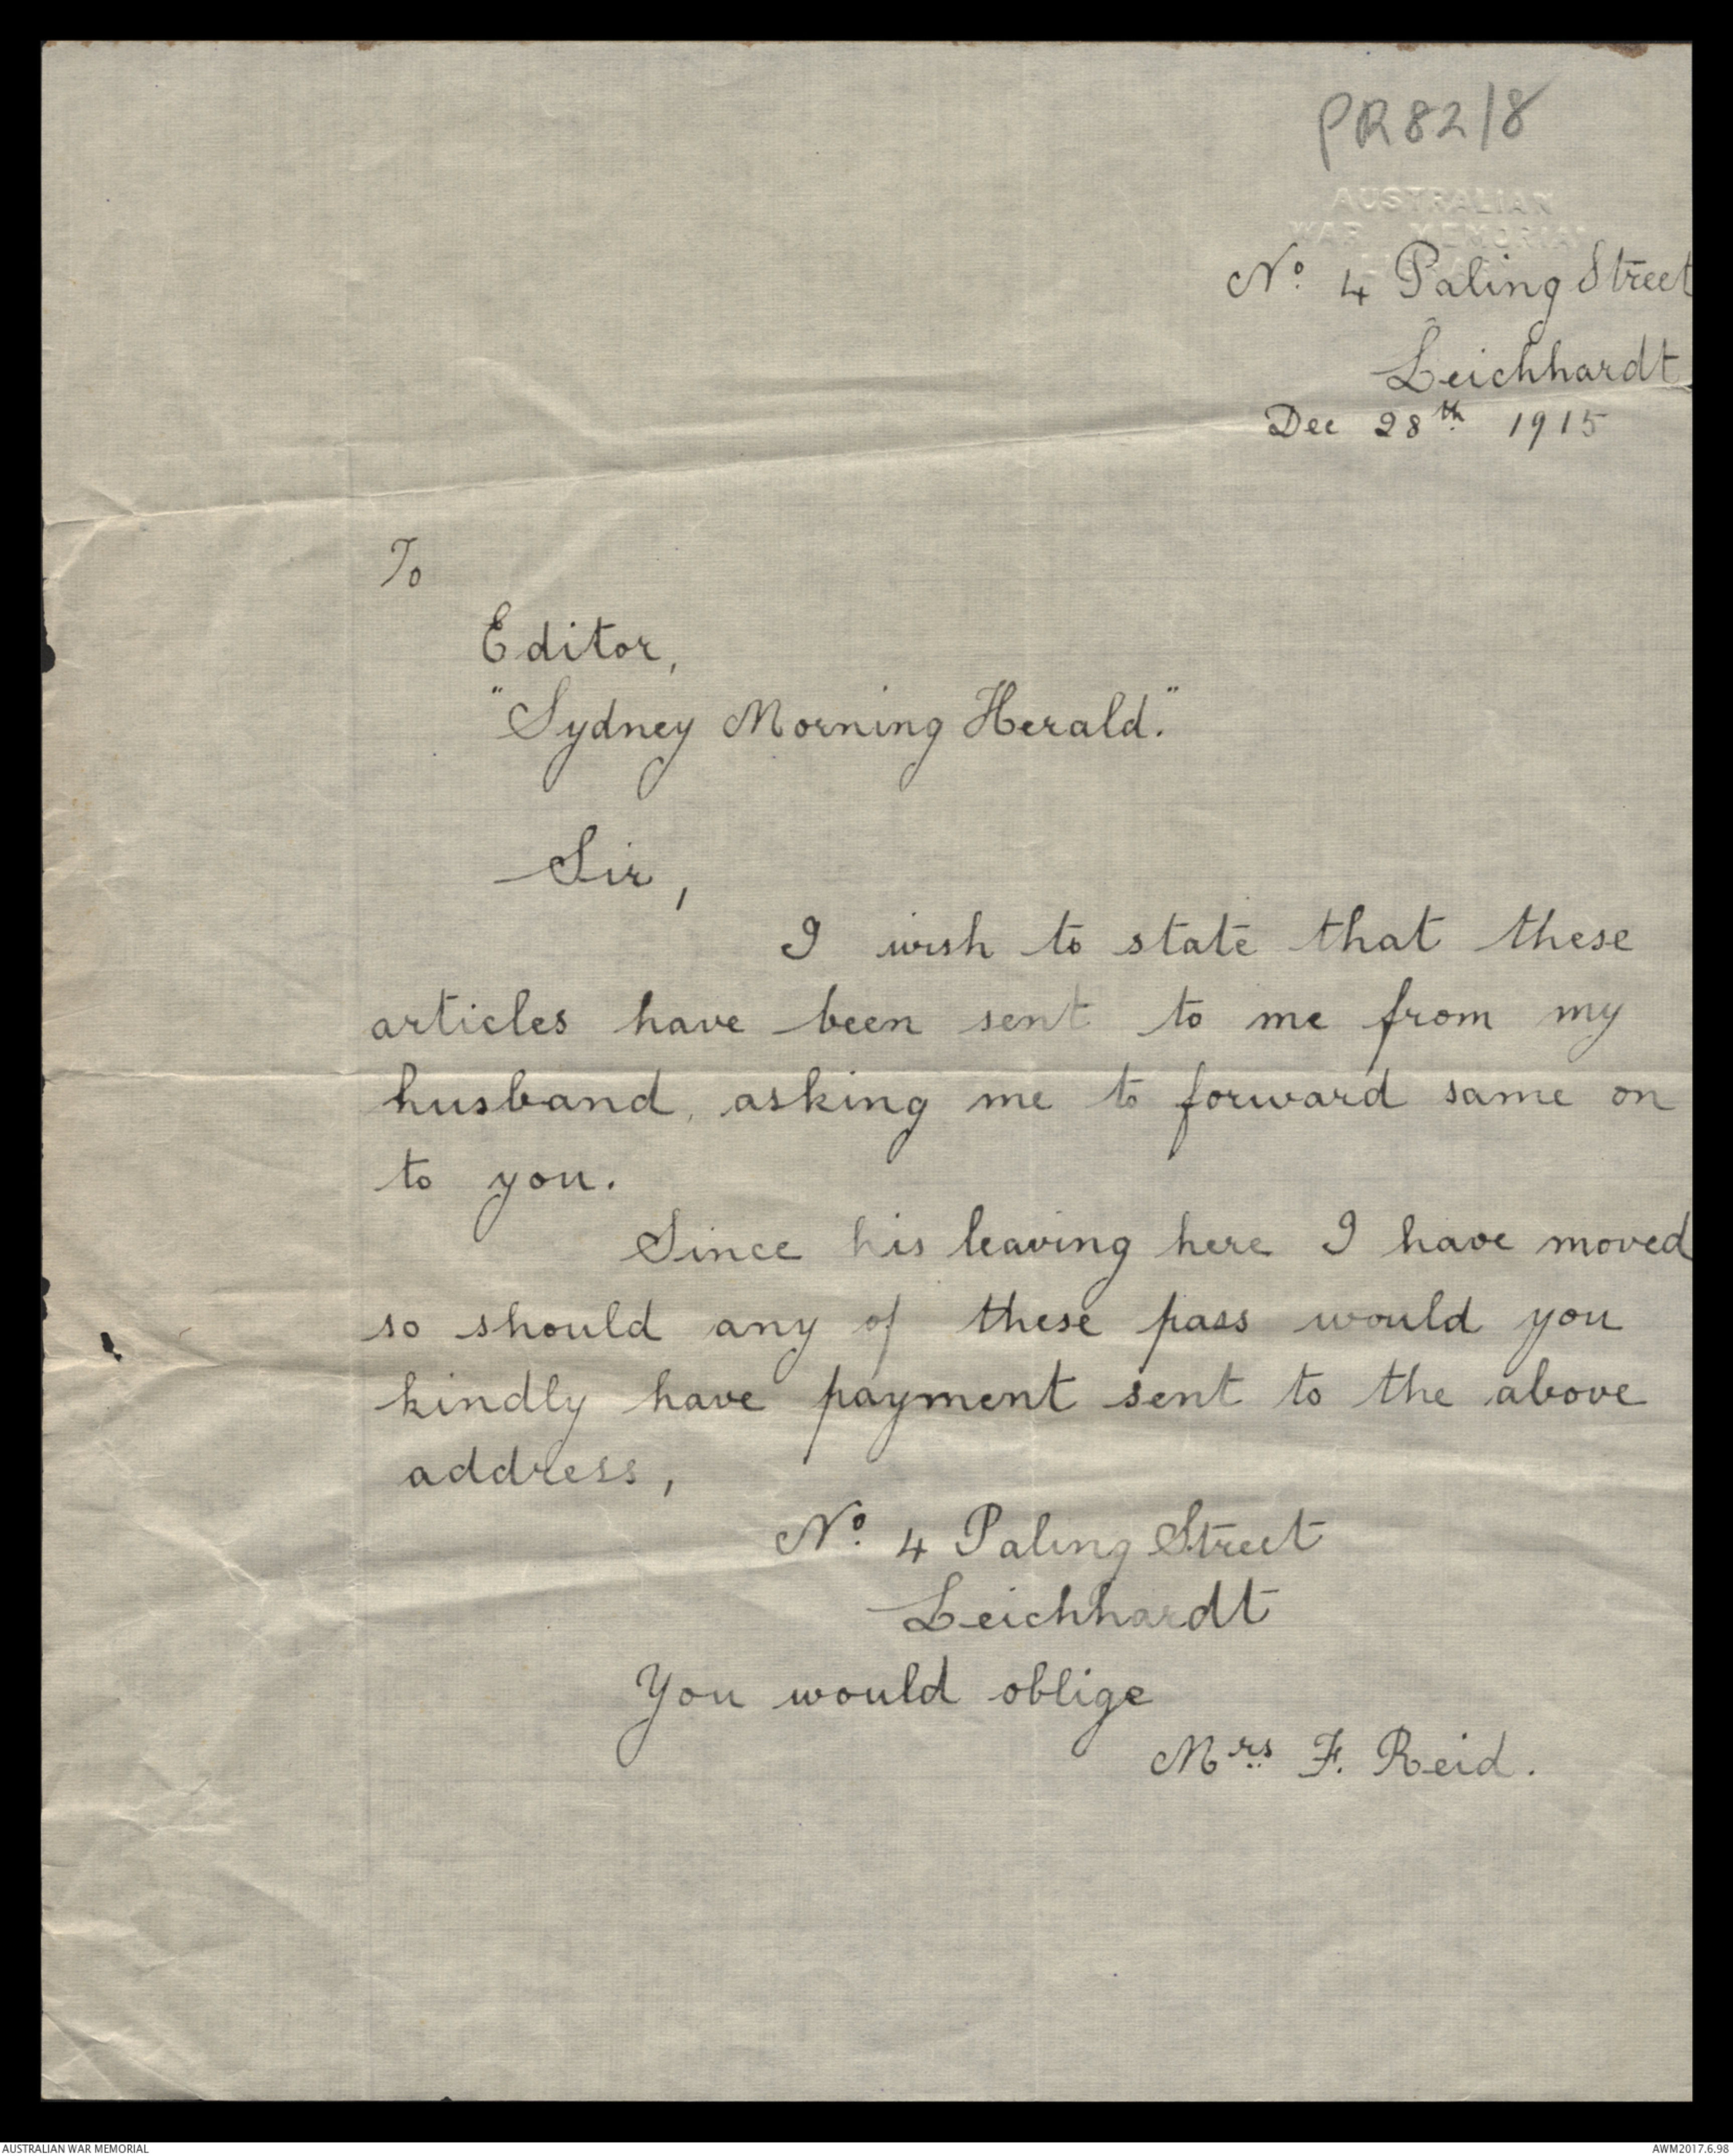 PR82/8
AUSTRALIAN
WAR MEMORIAL
No. 4 Paling Street
Leichhardt
Dec 28th 1915
To
Editor,
"Sydney Morning Herald."
Sir,
I wish to state that these
articles have been sent to me from my
husband, asking me to forward same on
to you.
Since his leaving here I have moved
so should any of these pass would you
kindly have payment sent to the above
address,
No. 4 Paling Street
Leichhardt
You would oblige
Mrs F. Reid.
AUSTRALIAN WAR MEMORIAL
AWM2017.6.98